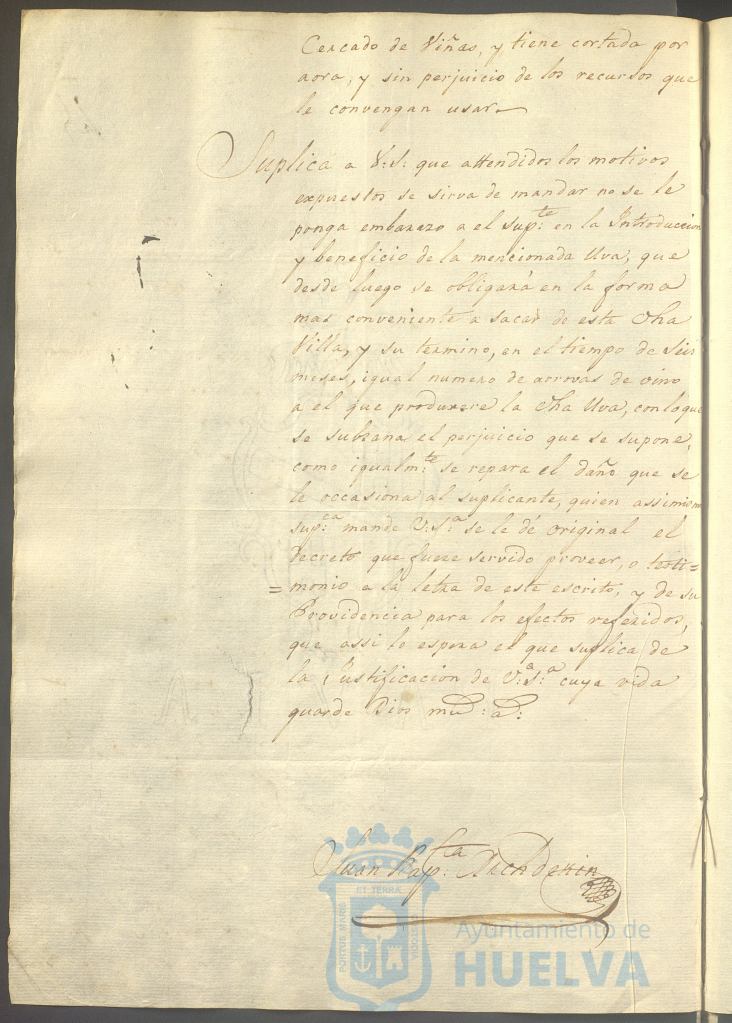 Cercado de Viñas, y tiene cortada por
aora, y sin perjuicio de los recursos que
le convengan usar
Suplica a V.S. que attendidos los motivos
expuestos se sirva de mandar no se le
ponga embarazo a el sup.te en la Introduccion
y beneficio de la mencionada Uva, que
desde luego se obligará en la forma
mas conveniente a sacar de esta dha
Villa, y su termino, en el tiempo de Seis
meses, igual numero de arrovas de vino
a el que produxere la dha Uva, con lo que
se subzana el perjuicio que se supone,
como igualm.te se repara el daño que se
le occasiona al suplicante, quien assimismo
sup.ca mande V.S.a se le dé original el
Decreto que fuere servido proveer, o testi=
=monio a la letra de este escrito, y de su
Providencia para los efectos referidos,
que assi lo espera el que suplica de
la Justificacion de V.a S.a cuya vida
guarde Dios mu.s a.s
Juan Bap.ta
PORTUS MARIS
ET TERRÆ
CUSTODIA
Ayuntamiento de
HUELVA